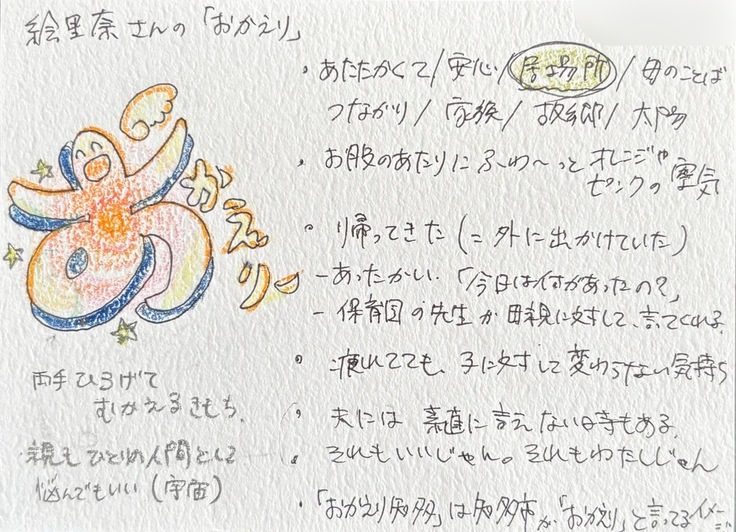 絵里奈さんの「おかえり」
・あたたかくて/安心/居場所/母のことば
つながり/家族/故郷/太陽
・お股のあたりにふわ〜っとオレンジや
ピンクの空気
・帰ってきた(=外に出かけていた)
-あったかい.「今日は何があったの?」
-保育園の先生が母親に対して、言ってくれる.
・疲れてても、子に対して変わらない気持ち
・夫には素直に言えない時もある.
・それもいいじゃん。それもわたしじゃん
・「おかえり知多」は知多市が「おかえり」と言ってるイメージ
おかえりー
両手ひろげて
むかえるきもち.
・親もひとりの人間として
悩んでもいい(宇宙)